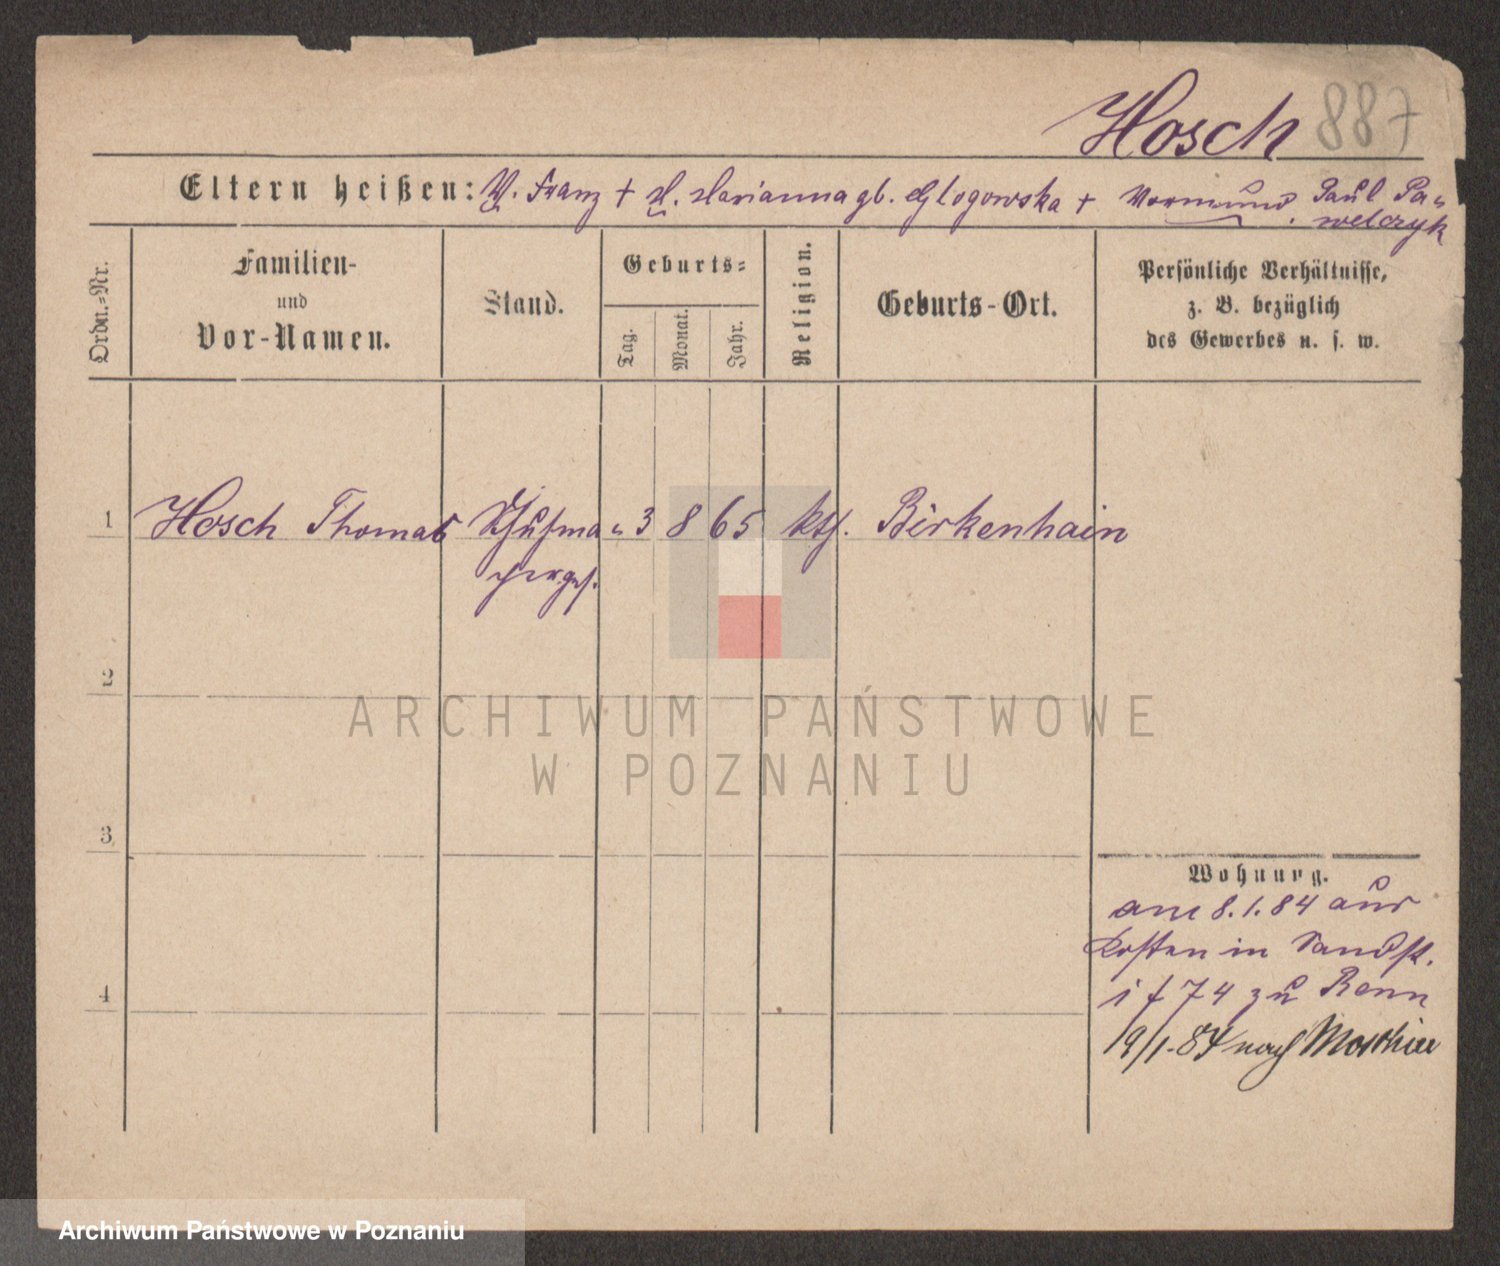 Hosch 887
Eltern heißen: V. Franz + M. Marianna gb. Glogowska + Vormund. Paul Pa-
welczyk
Ordn.-Nr.
Familien-
und
Vor-Namen.
Stand.
Geburts-
Tag.
Monat.
Jahr.
Religion.
Geburts-Ort.
Persönliche Verhältnisse,
z. B. bezüglich
des Gewerbes u. s. w.
1 Hosch Thomas Schuhma- 3 8 65 kth. Birkenhain
cherges.
2
3
4
Wohnung.
am 8.1.84 aus
Kosten in Sandst.
74 zu Renn
19/1.84 nach
ARCHIWUM PAŃSTWOWE
W POZNANIU
Archiwum Państwowe w Poznaniu